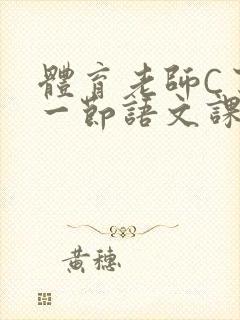 體育老師C
一節語文課
黃穗